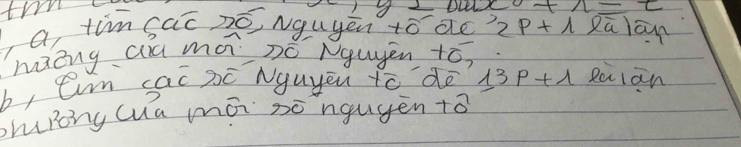 a, tìm các số Nguyên tố để 2P+1 là lập
phương của một số Nguyên tố,
b, tìm các số Nguyên tố để 13P+1 là lập
phương của một số nguyên tố